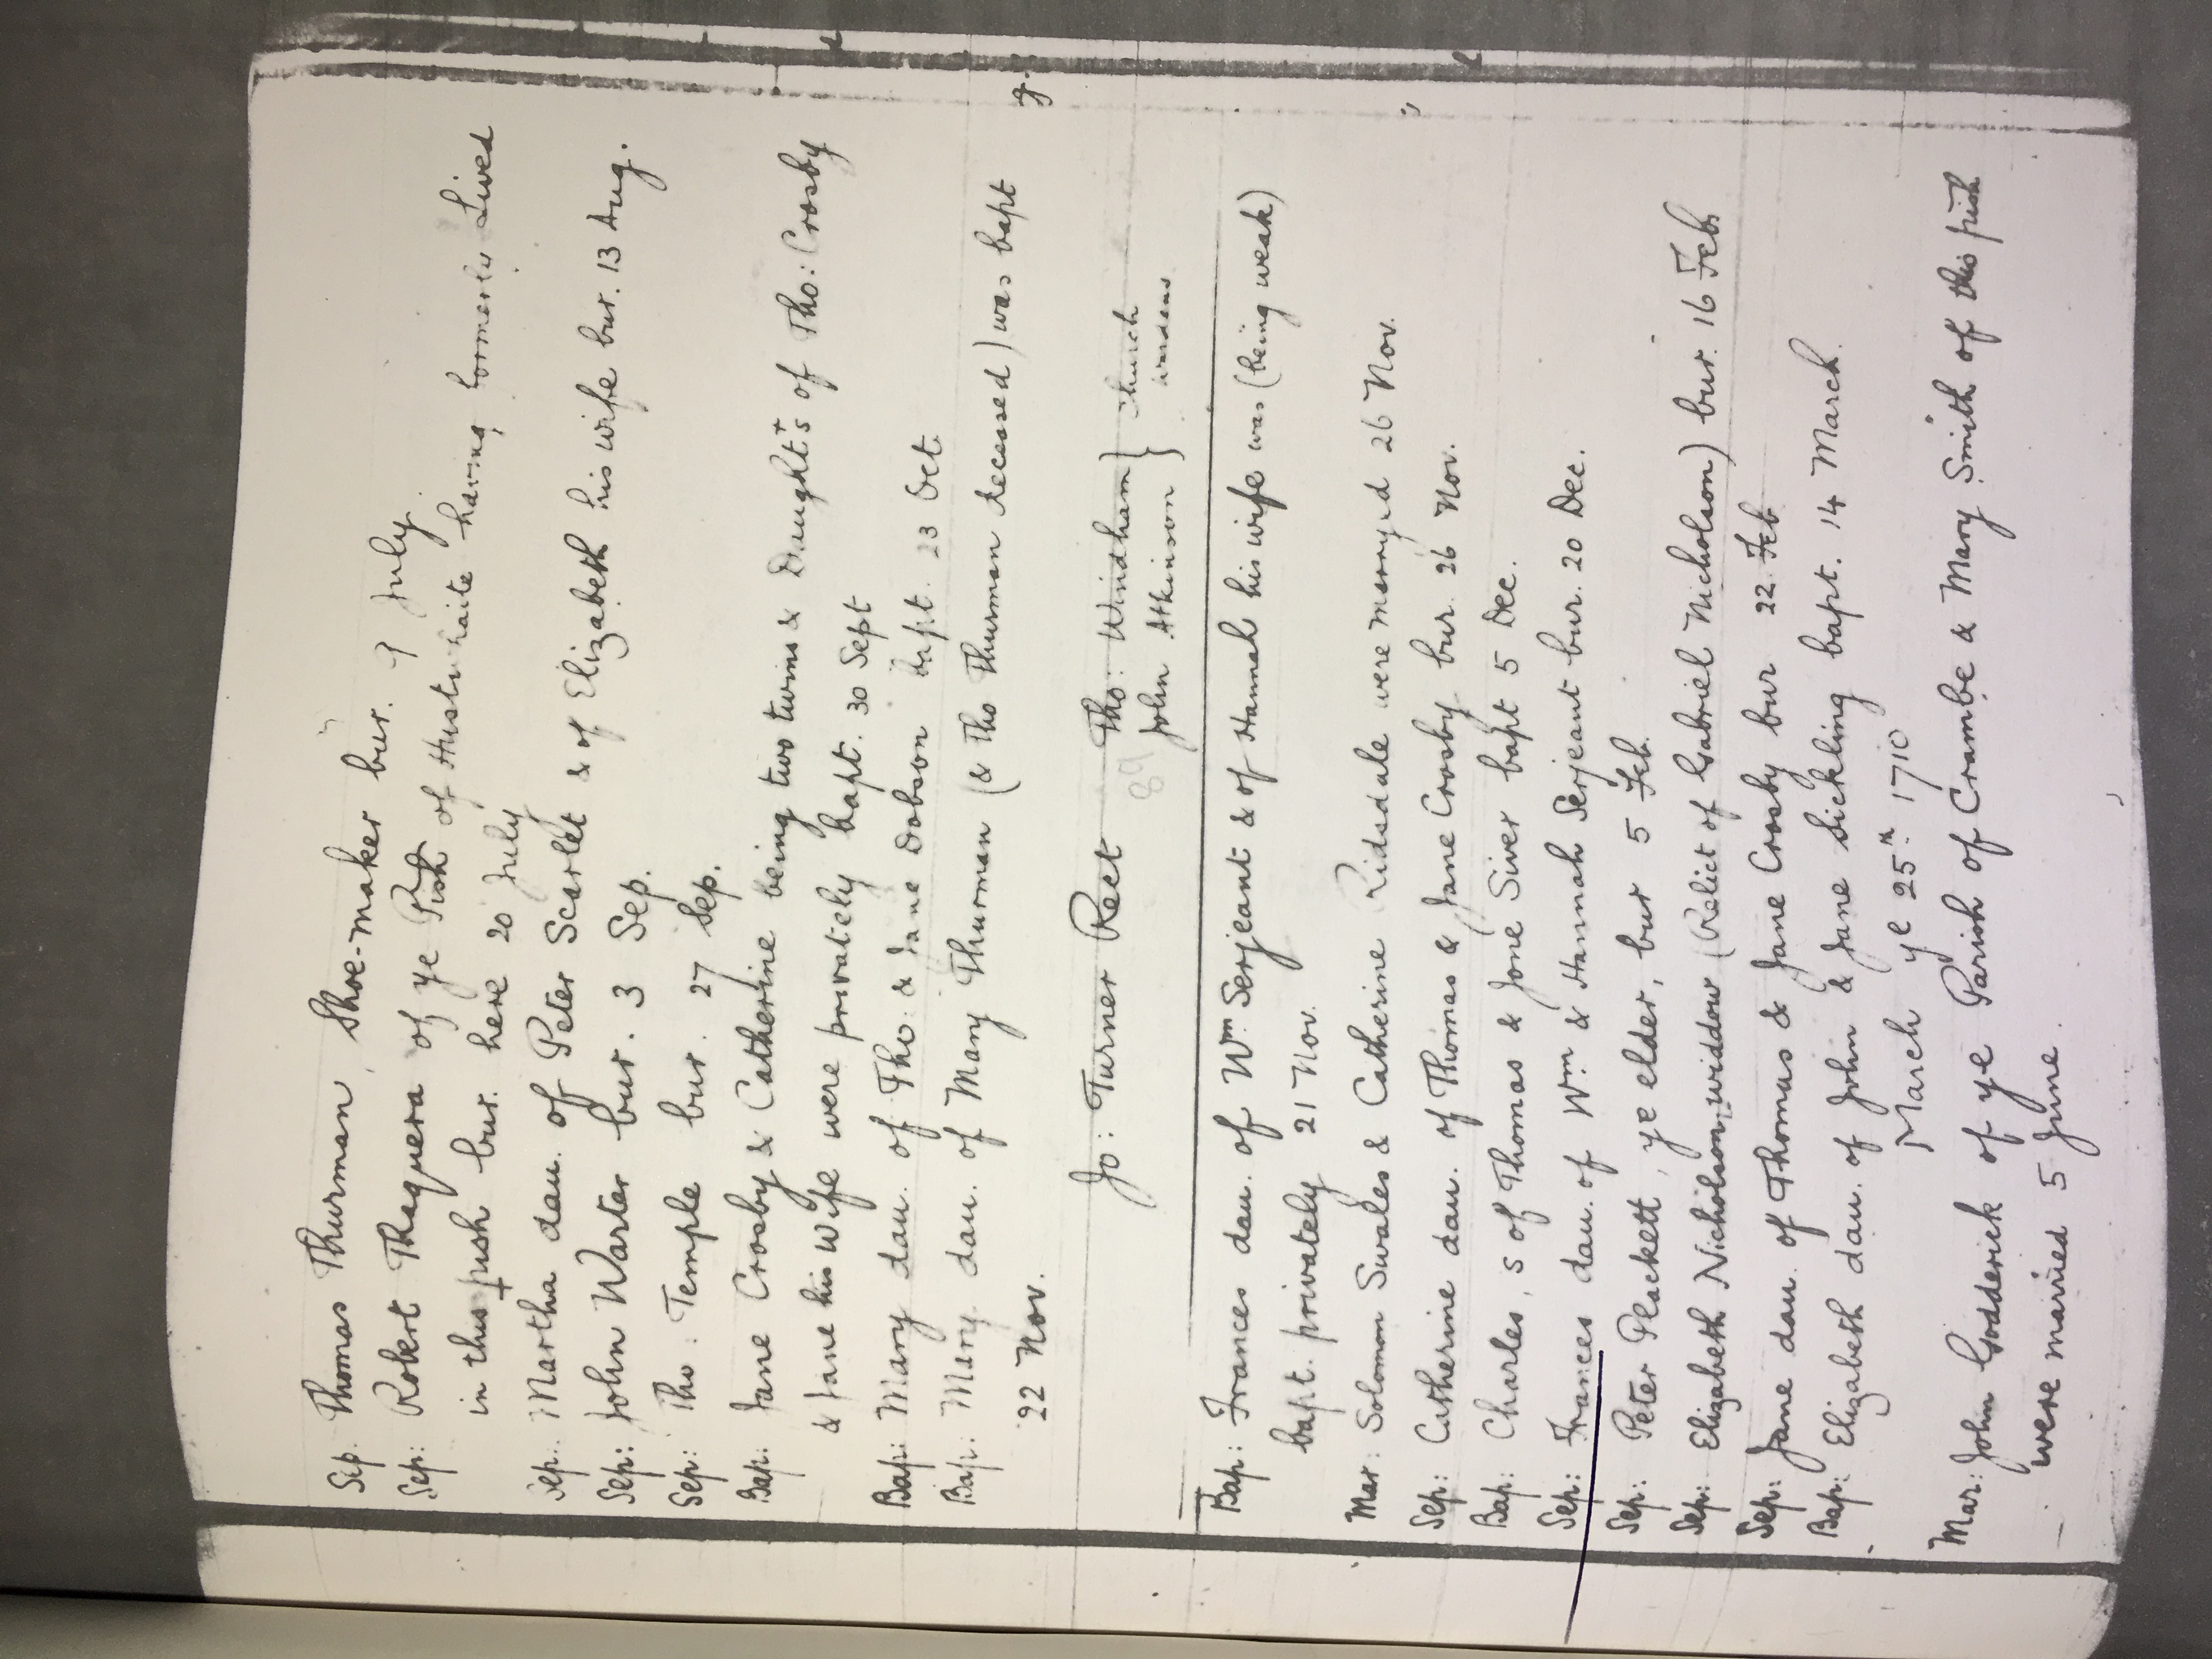 Sep. Thomas Thurman, Shoe-maker bur. 7 July.
Sep: Robert Thaquera of ye Prish of having formerly Lived
in this prish bur. here 20 July
Sep. Martha dau. of Peter Scarlet & of Elizabeth his wife bur. 13 Aug.
Sep: John Warter bur. 3 Sep.
Sep: Tho. Temple bur. 27 Sep.
Bap: Jane Crosby & Catherine being two twins & Daughtrs of Tho: Crosby
& Jane his Wife were privately bapt. 30 Sept
Bap: Mary dau. of Tho: & Jane Dobson bapt. 23 Oct.
Bap: Mary dau. of Mary Thurman (& Tho Thurman deceased) was bapt
22 Nov.
Jo: Turner Rect Tho: Windham } church
John Atkinson } wardens
89
Bap: Frances dau. of Wm Serjeant & of Hannah his wife was (being weak)
bapt. privately 21 Nov.
Mar: Solomon Swales & Catherine Ridsdale were marryd 26 Nov.
Sep: Catherine dau. of Thomas & Jane Crosby bur. 26 Nov.
Bap: Charles, s of Thomas & Jone Siver bapt 5 Dec.
Sep: Frances dau. of Wm & Hannah Serjeant bur. 20 Dec.
Sep: Peter Plackett, ye elder, bur 5 Feb.
Sep: Elizabeth Nicholson, widdow (Relict of Gabriel Nicholson) bur. 16 Feb
Sep: Jane dau. of Thomas & Jane Crosby bur 22 Feb
Bap: Elizabeth dau. of John & Jane Sickling bapt. 14 March.
March ye 25th 1710
Mar: John Godderick of ye Parish of Crambe & Mary Smith of this prish
were married 5 June.